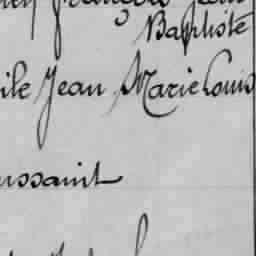 françois Jean
Baptiste
ile Jean Marie Louis
ussaint